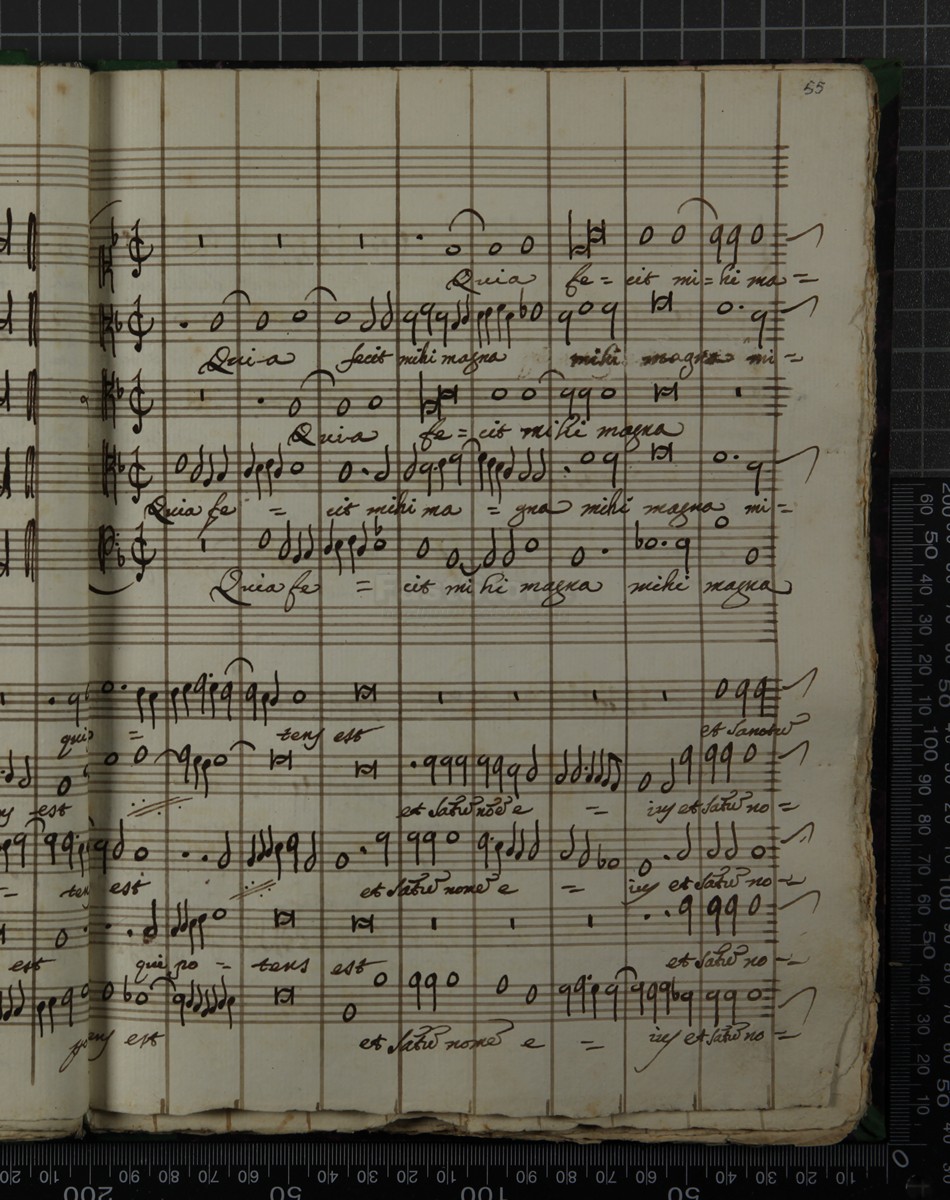 55
Quia fe = cit mi = hi ma =
Qui-a fecit mihi magna mihi magna mi =
Quia fe = cit mihi magna
Quia fe = cit mihi ma = gna mihi magna mi =
Quia fe = cit mihi magna mihi magna
qui = tens est et sanctū
est et satū nomē e = ius et satū no =
= tens est et satū nomē e = ius et satū no =
est qui po = tens est et satū no =
tens est et satū nomē e = ius et satū no =